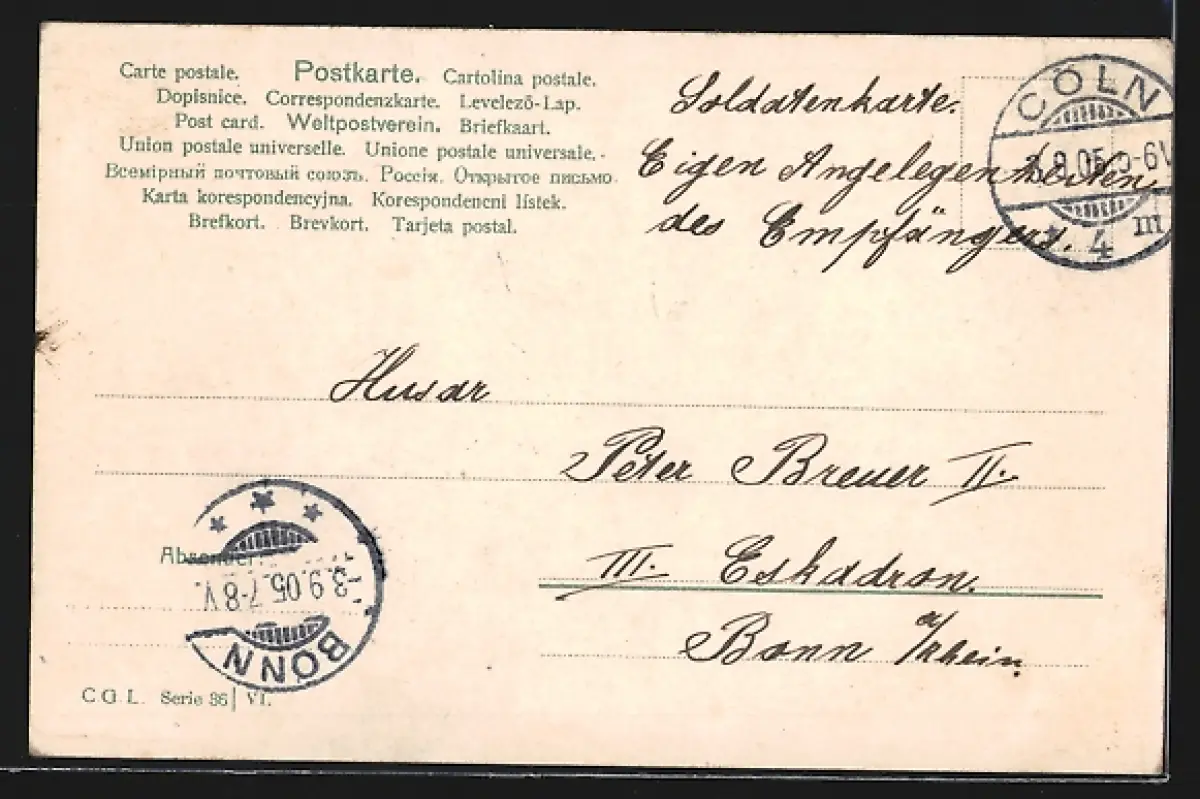 Carte postale. Postkarte. Cartolina postale.
Dopisnice. Correspondenzkarte. Levelező-Lap.
Post card. Weltpostverein. Briefkaart.
Union postale universelle. Unione postale universale.
Всемірный почтовый союзъ. Россія. Открытое письмо.
Karta korespondencyjna. Korespondencni lístek.
Brefkort. Brevkort. Tarjeta postal.
Soldatenkarte.
Eigen Angelegenheiten
des Empfängers.
CÖLN
9.05. 5-6V
4 m
Husar
Peter Breuer II.
III. Eskadron.
Bonn a/Rhein.
Absender:
-3.9.05.7-8 V.
BONN
C.G.L. Serie 36/VI.